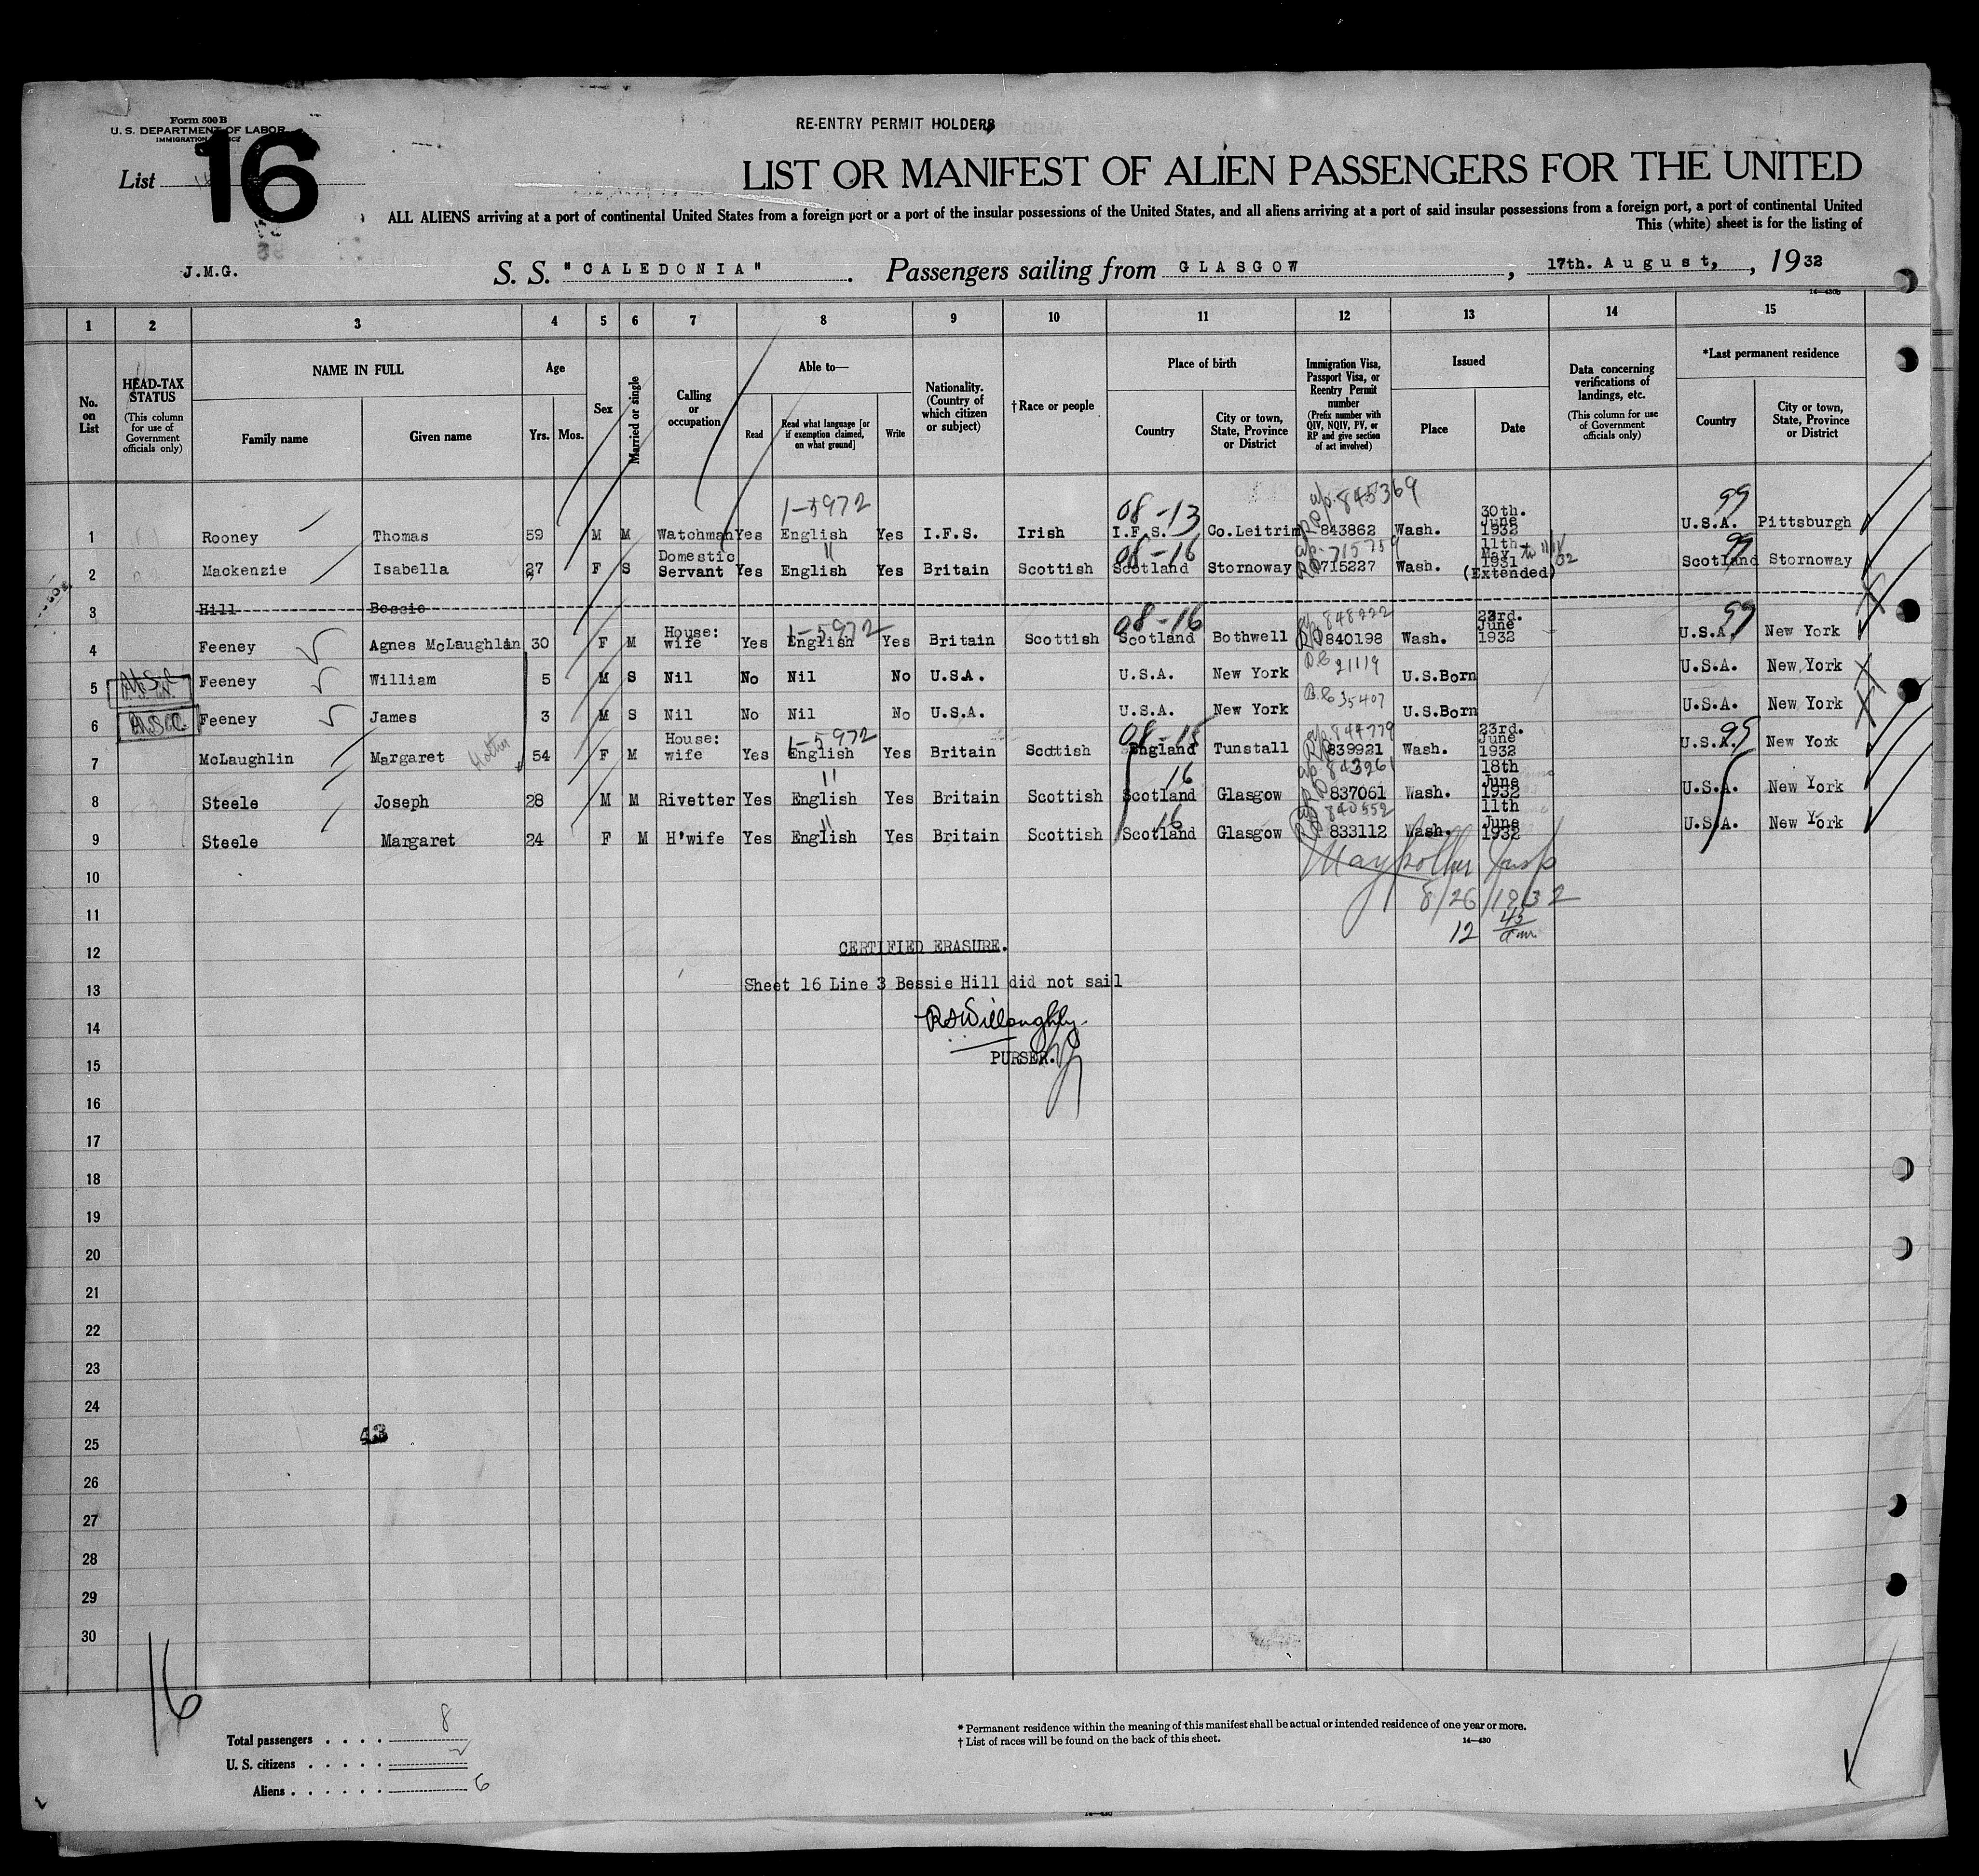 Form 500 B
U. S. DEPARTMENT OF LABOR
IMMIGRATION
RE-ENTRY PERMIT HOLDERS
List 16
LIST OR MANIFEST OF ALIEN PASSENGERS FOR THE UNITED
ALL ALIENS arriving at a port of continental United States from a foreign port or a port of the insular possessions of the United States, and all aliens arriving at a port of said insular possessions from a foreign port, a port of continental United
This (white) sheet is for the listing of
J.M.G. S. S. "CALEDONIA". Passengers sailing from GLASGOW, 17th. August, , 1932
14—430b
1 2 3 4 5 6 7 8 9 10 11 12 13 14 15
No. on List
HEAD-TAX STATUS
(This column for use of Government officials only)
NAME IN FULL
Family name Given name
Age
Yrs. Mos.
Sex
Married or single
Calling or occupation
Able to—
Read
Read what language [or if exemption claimed, on what ground]
Write
Nationality. (Country of which citizen or subject)
† Race or people
Place of birth
Country
City or town, State, Province or District
Immigration Visa, Passport Visa, or Reentry Permit number
(Prefix number with QIV, NQIV, PV, or RP and give section of act involved)
Issued
Place Date
Data concerning verifications of landings, etc.
(This column for use of Government officials only)
*Last permanent residence
Country
City or town, State, Province or District
1-5972 08-13 845369 99
1 Rooney Thomas 59 M M Watchman Yes English Yes I.F.S. Irish I.F.S. Co.Leitrim RP 843862 Wash. 30th. June 1932 U.S.A. Pittsburgh
" 08-16 99
2 Mackenzie Isabella 27 F S Domestic Servant Yes English Yes Britain Scottish Scotland Stornoway 715227 Wash. 11th. May 1931 (Extended) Scotland Stornoway
3 Hill Bessie
1-5972 08-16 848222 99
4 Feeney Agnes McLaughlin 30 F M House: wife Yes English Yes Britain Scottish Scotland Bothwell 840198 Wash. 23rd. June 1932 U.S.A. New York
21119
5 Feeney William 5 M S Nil No Nil No U.S.A. U.S.A. New York U.S.Born U.S.A. New York
B.C. 35407
6 Feeney James 3 M S Nil No Nil No U.S.A. U.S.A. New York U.S.Born U.S.A. New York
1-5972 08-15 844779 99
7 McLaughlin Margaret Mother 54 F M House: wife Yes English Yes Britain Scottish England Tunstall 839921 Wash. 23rd. June 1932 U.S.A. New York
" 16 843261
8 Steele Joseph 28 M M Rivetter Yes English Yes Britain Scottish Scotland Glasgow 837061 Wash. 18th June 1932 U.S.A. New York
" 16 840552
9 Steele Margaret 24 F M H'wife Yes English Yes Britain Scottish Scotland Glasgow 833112 Wash. 11th June 1932 U.S.A. New York
10
8/26/1932
11
12 45
12 CERTIFIED ERASURE.
13 Sheet 16 Line 3 Bessie Hill did not sail
14 RSWilloughby.
15 PURSER.
16
17
18
19
20
21
22
23
24
43
25
26
27
28
29
30
16
Total passengers . . . . 8
U. S. citizens . . . . . 2
Aliens . . . . . 6
* Permanent residence within the meaning of this manifest shall be actual or intended residence of one year or more.
† List of races will be found on the back of this sheet.
14—430